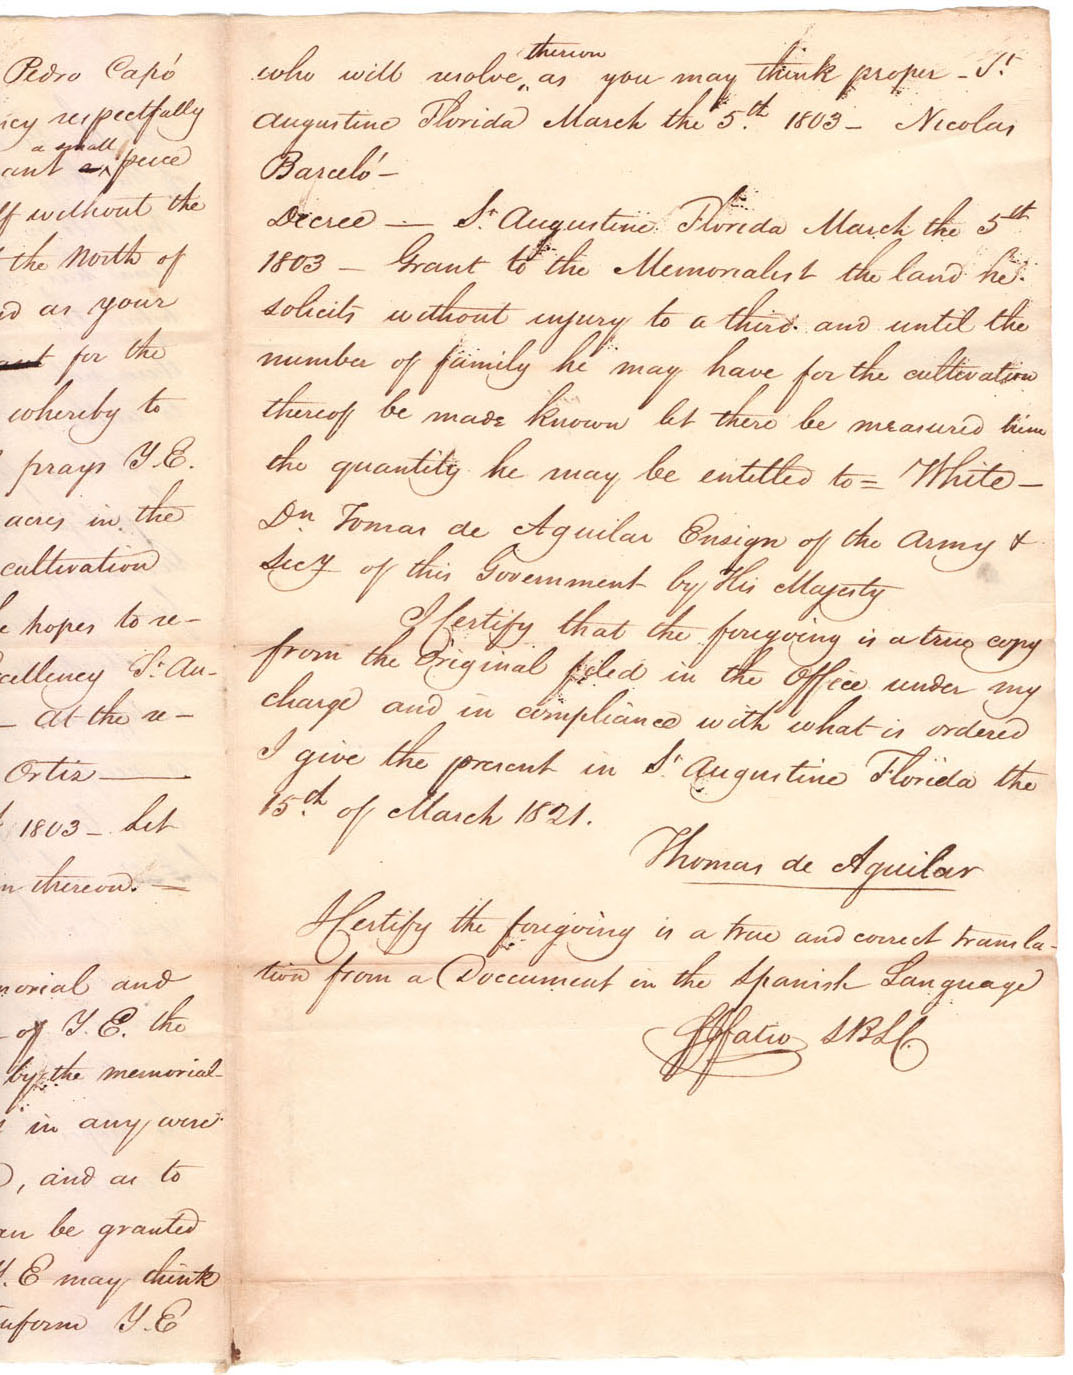 Pedro Capó
respectfully
a small
ant peice
ff without the
the North of
as your
ant for the
whereby to
prays Y.E.
acres in the
cultivation
hopes to re-
cellency St. Au-
At the re-
Ortiz
1803 - Let
thereon.
morial and
of Y.E. the
by the memorial-
in any wise
, and as to
an be granted
Y.E may think
nform Y.E
thereon
who will resolve, as you may think proper - St.
Augustine Florida March the 5th. 1803 - Nicolas
Barceló -
Decree - St. Augustine Florida March the 5th
1803 - Grant to the Memorialist the land he
solicits without injury to a third. and until the
number of family he may have for the cultivation
thereof be made known let there be measured him
the quantity he may be entitled to = White -
Dn Tomas de Aguilar Ensign of the Army &
Secy of this Government by His Majesty
I Certify that the foregoing is a true copy
from the Original filed in the Office under my
charge and in compliance with what is ordered
I give the present in St. Augustine Florida the
15th. of March 1821.
Thomas de Aguilar
I Certify the foregoing is a true and correct transla-
tion from a Doccument in the Spanish Language
Fatio SBLC.